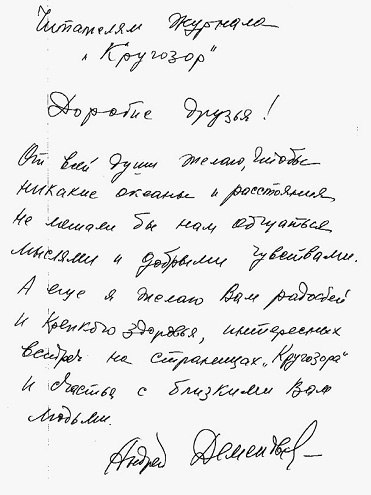 Читателям журнала
„Кругозор"
Дорогие друзья!
От всей души желаю, чтобы
никакие океаны и расстояния
не мешали бы нам общаться
мыслями и добрыми чувствами.
А еще я желаю Вам радостей
и крепкого здоровья, интересных
встреч на страницах „Кругозора"
и счастья с близкими Вам
людьми.
Андрей Дементьев